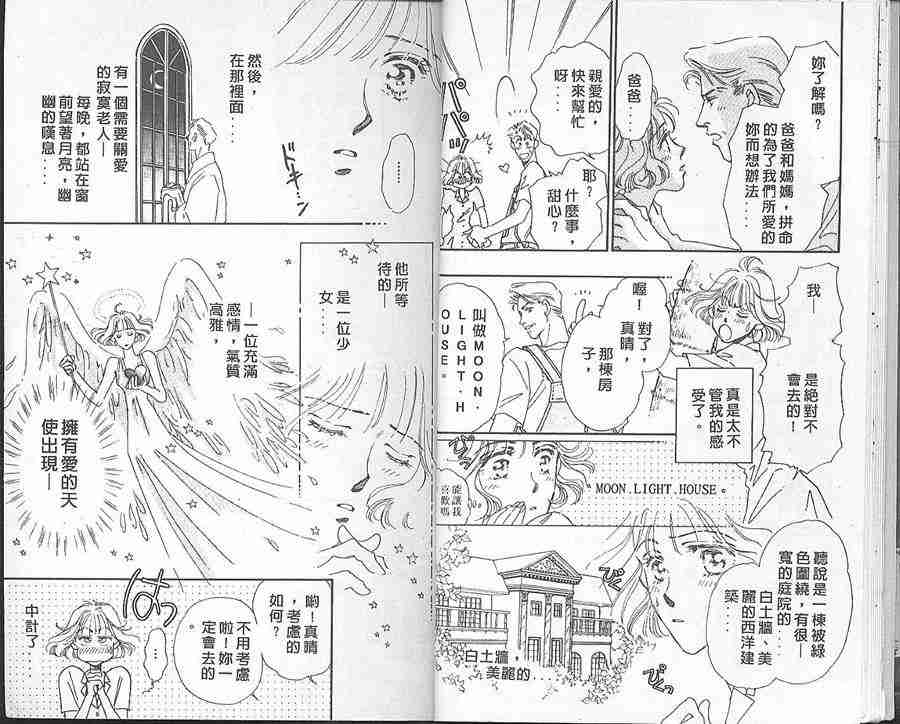 妳了解嗎?
爸爸和媽媽,拼命
的為了我們所愛的
妳而想辦法....
爸爸...
親愛的,
快來幫忙
呀....
耶?什麼事,
甜心?
我—
是絕對不
會去的!
真是太不
管我的感
受了。
喔!
對了,
真晴,
那棟房
子,
叫做MOON.
LIGHT.H
OUSE。
MOON.LIGHT.HOUSE。
能讓我
喜歡嗎
聽說是一棟被綠
色圍繞,有很—
寬的庭院的...
白土牆、美
麗的西洋建
築....
白土牆,
美麗的...
然後,
在那裡面....
......
有一個需要關愛
的寂寞老人—
每晚,都站在窗
前望著月亮,幽
幽的嘆息...
他所等
待的—
是一位少
女....
—一位充滿
感情,氣質
高雅,
擁有愛的天
使出現—
喲!真晴
,考慮的
如何?
不用考慮
啦!妳一
定會去的
...
中計了
パパーッ
ドキン
ぴくっ
ぴくっ
ぴくっ
はっ